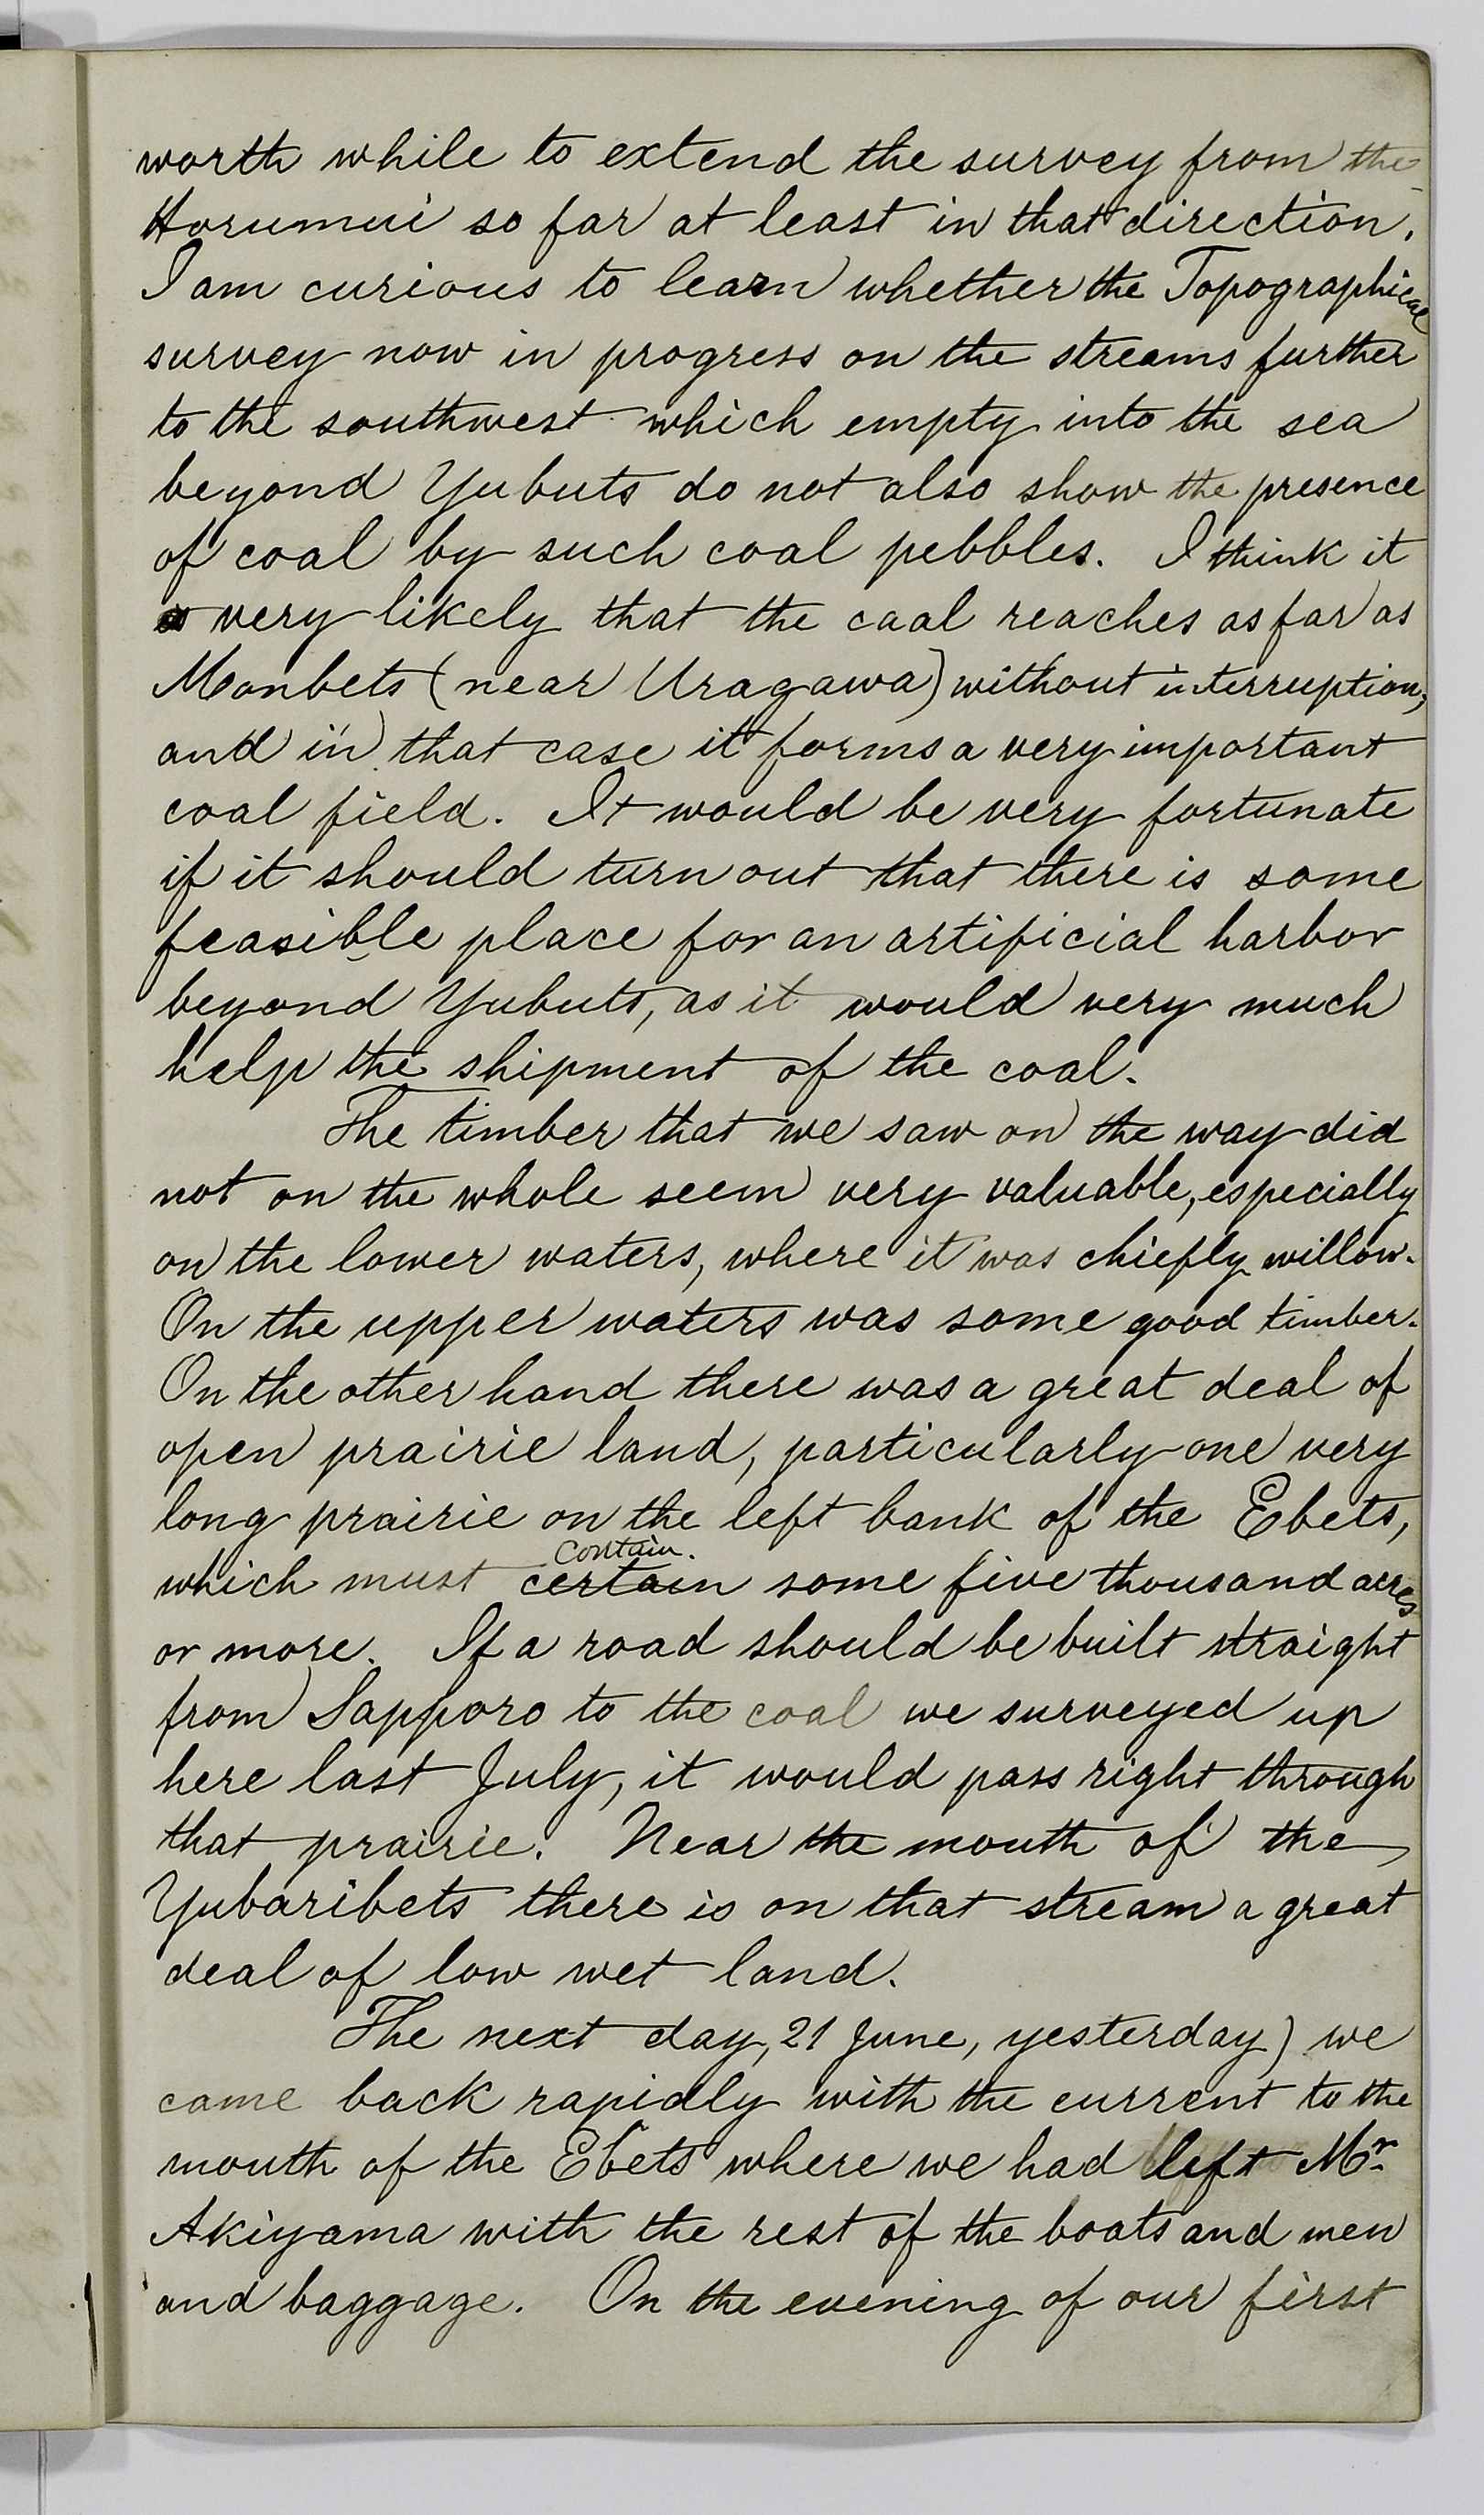 worth while to extend the survey from the
Horumui so far at least in that direction.
I am curious to learn whether the Topographical
survey now in progress on the streams further
to the southwest which empty into the sea
beyond Yubuts do not also show the presence
of coal by such coal pebbles. I think it
is very likely that the coal reaches as far as
Monbets (near Uragawa) without interruption;
and in that case it forms a very important
coal field. It would be very fortunate
if it should turn out that there is some
feasible place for an artificial harbor
beyond Yubuts, as it would very much
help the shipment of the coal.
The timber that we saw on the way did
not on the whole seem very valuable, especially
on the lower waters, where it was chiefly willow.
On the upper waters was some good timber.
On the other hand there was a great deal of
open prairie land, particularly one very
long prairie on the left bank of the Ebets,
contain.
which must certain some five thousand acres
or more. If a road should be built straight
from Sapporo to the coal we surveyed up
here last July, it would pass right through
that prairie. Near the mouth of the
Yubaribets there is on that stream a great
deal of low wet land.
The next day, 21 June, yesterday) we
came back rapidly with the current to the
mouth of the Ebets where we had left Mr.
Akiyama with the rest of the boats and men
and baggage. On the evening of our first